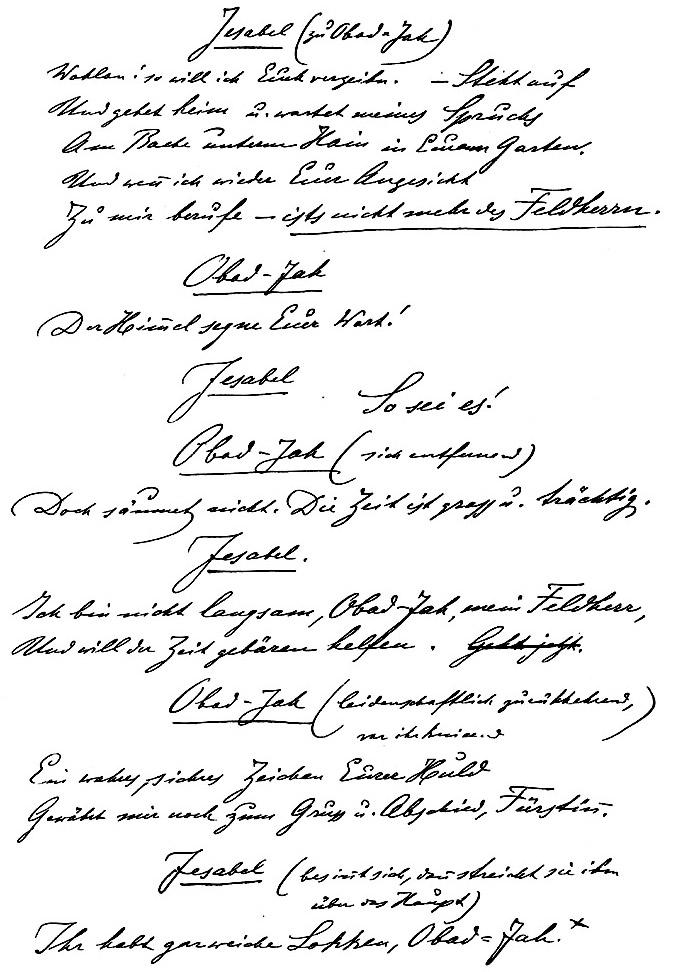 Jesabel (zu Obad=Jah)
Wohlan! so will ich Euch verzeihn. — Steht auf
Und gehet heim u. wartet meines Spruchs
Am Bache unterm Hain in Eurem Garten.
Und wen̄ ich wieder Euer Angesicht
Zu mir berufe — ists nicht mehr des Feldherrn.
Obad-Jah
Der Him̄el segne Euer Wort!
Jesabel
So sei es!
Obad-Jah (sich entfernend)
Doch säumet nicht. Die Zeit ist gross u. trächtig.
Jesabel.
Ich bin nicht langsam, Obad-Jah, mein Feldherr,
Und will der Zeit gebären helfen. Geht jetzt.
Obad-Jah (leidenschaftlich zurückkehrend,
vor ihr kniend)
Ein wahres, sichres Zeichen Eurer Huld
Gewährt mir noch zum Gruss u. Abschied, Fürstin̄.
Jesabel (besin̄t sich, dan̄ streicht sie ihm
über das Haupt)
Ihr habt gar weiche Lokken, Obad=Jah.x